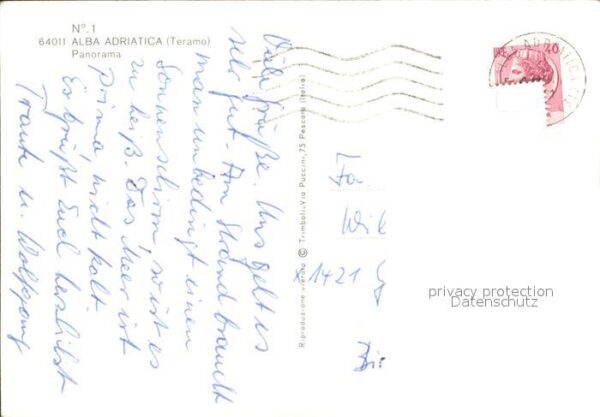 N°. 1
64011 ALBA ADRIATICA (Teramo)
Panorama
Viele Grüße. Uns geht es
sehr gut. Am Strand braucht
man unbedingt einen
Sonnenschirm, so ist es
zu heiß. Das Meer ist
prima, nicht kalt.
Es grüßt Euch herzlichst
Traute u. Wolfgang
Riproduzione vietata © Trimboli-Via Puccini, 75 Pescara (Italia)
40
Fa
Wil
1421
privacy protection
Datenschutz